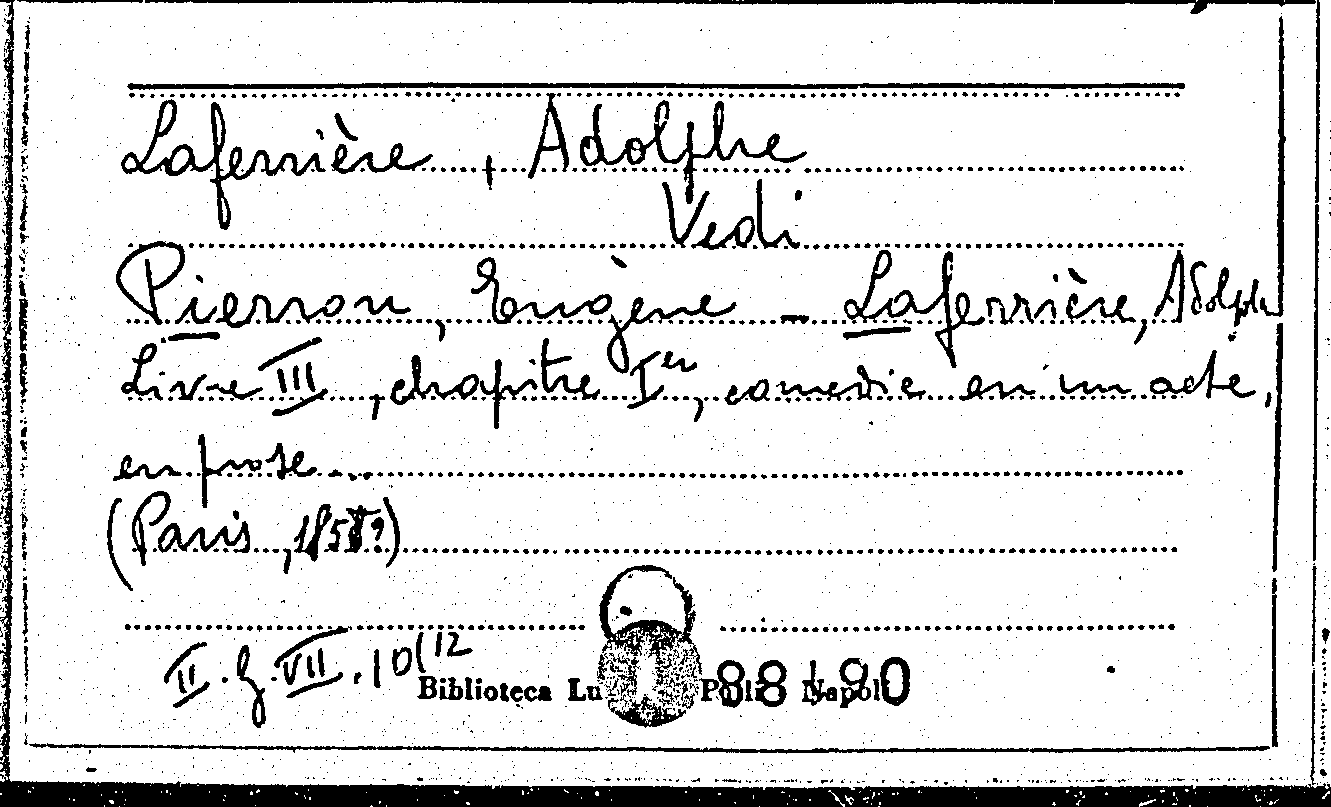 Laferrière, Adolphe
Vedi
Pierron, Eugène - Laferrière, Adolphe
Livre III, chapitre Ier, comedie en un acte,
en prose...
(Paris,
II. Z. VII. 10(12
Biblioteca Lu